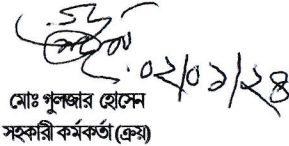 ০২/০১/২৪
মোঃ গুলজার হোসেন
সহকারী কর্মকর্তা (ক্রয়)